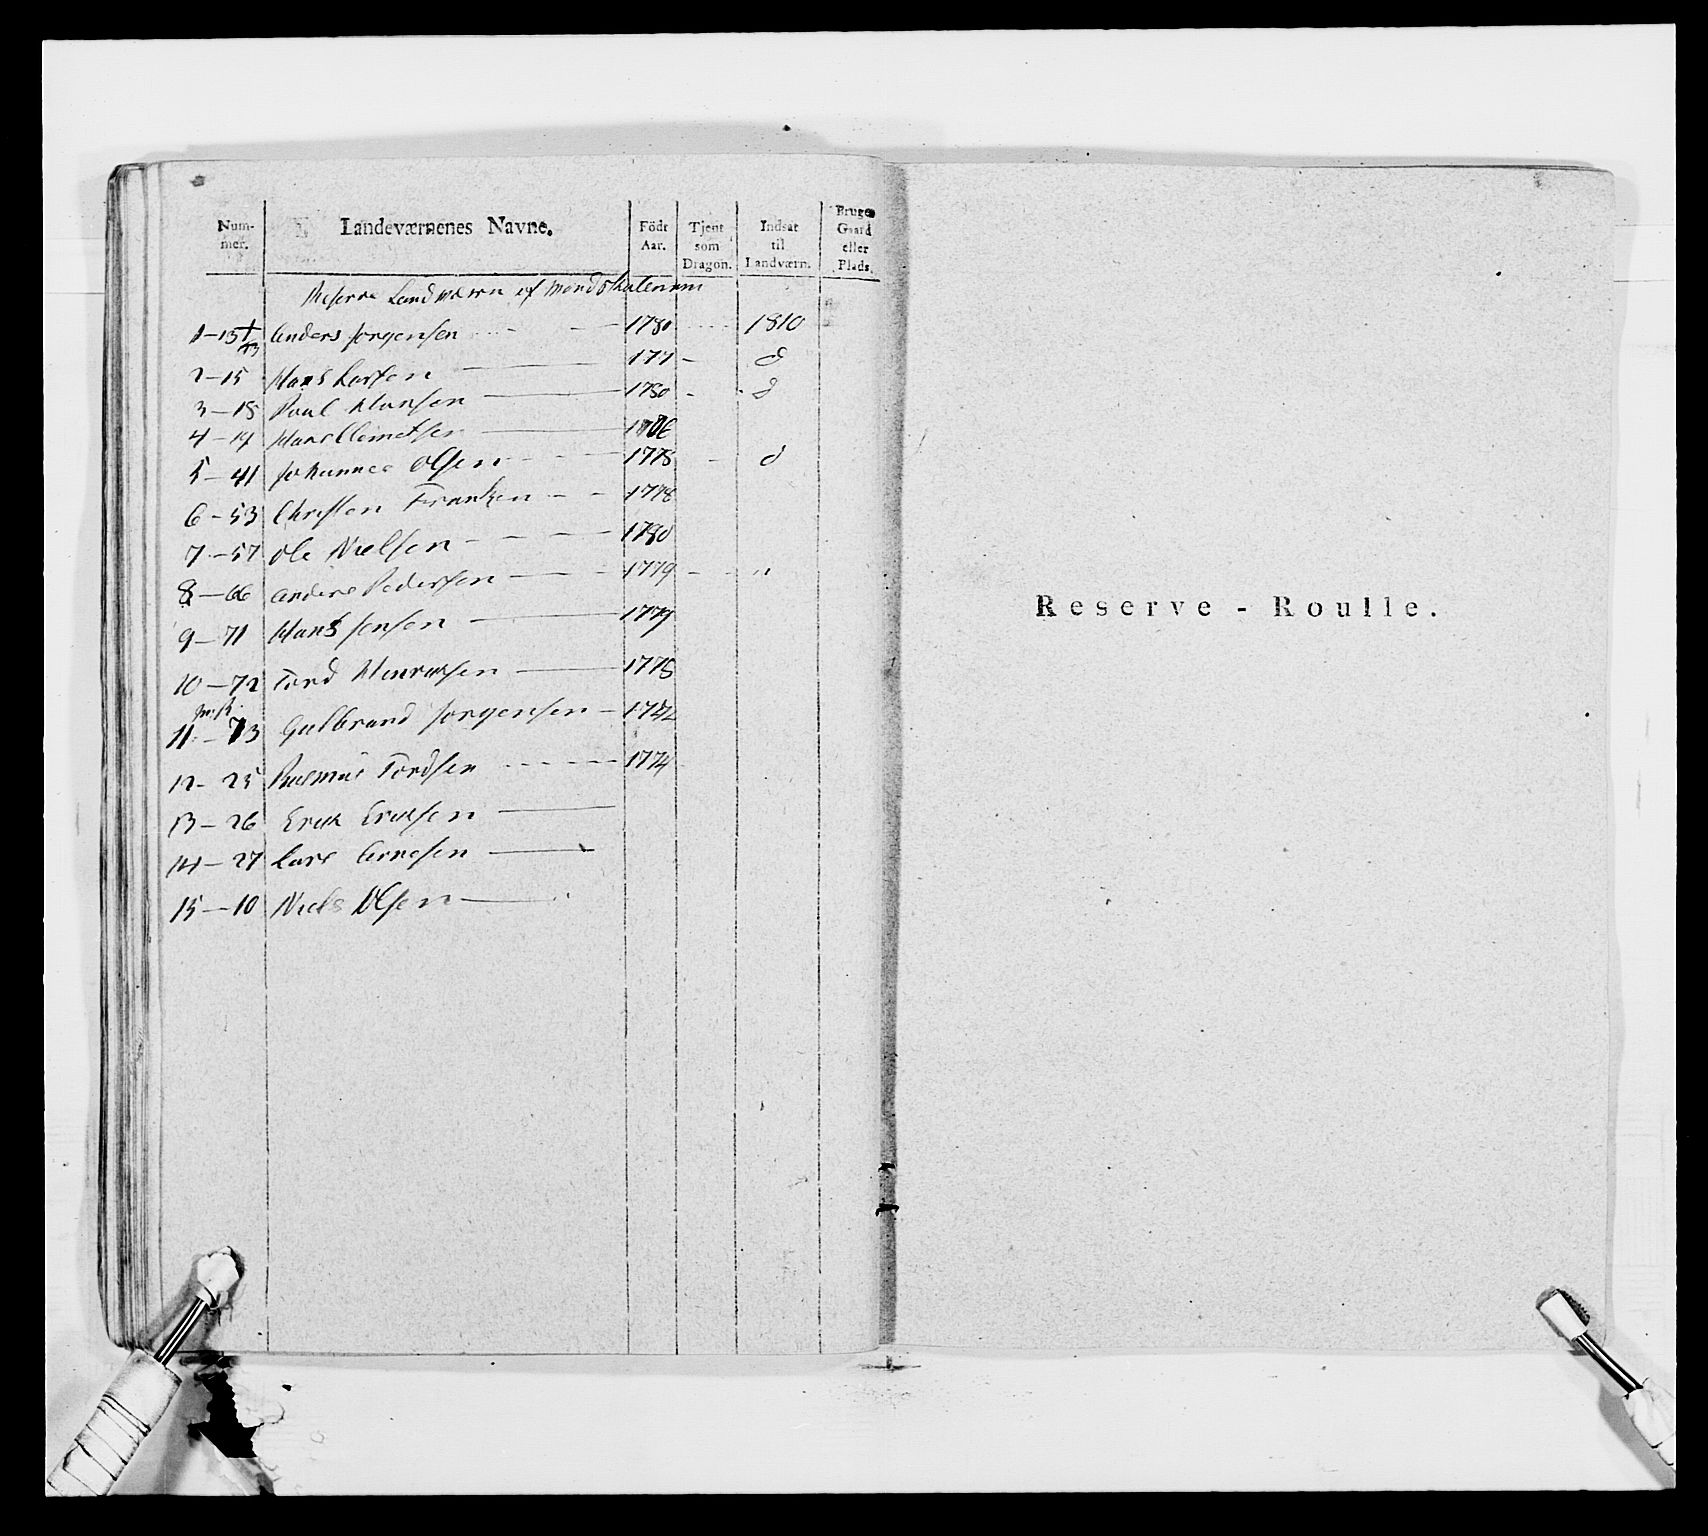 Num-mer. Landeværnenes Navne. Födt Aar. Tjent som Dragon. Indsat til Landværn. Bruger Gaard eller Plads.
Reserve Landværn af Mandskabet
1-13 Anders Jørgensen 1780 1810
2-15 Hans Larsen 177 d
3-18 Poul Hansen 1780 d
4-19 Hans Clemetsen
5-41 Johannes Olsen 1778 d
6-53 Christen Frantzen 1778
7-57 Ole Nielsen 1780
8-66 Anders Pedersen 1779 "
9-71 Hans Jensen 1779
10-72 Tord Henrichsen 1778
11-73 Gulbrand Jørgensen
12-25 Rasmus Tordsen 1774
13-26 Erich Erichsen
14-27 Lars Arnesen
15-10 Niels Olsen
Reserve-Roulle.